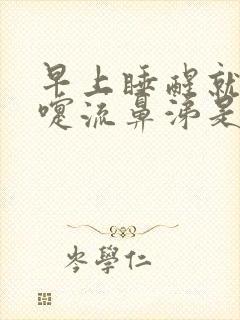 早上睡醒就
嚏流鼻涕是
岑學仁